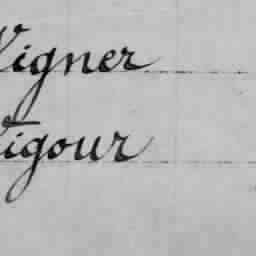 Vigner
Vigour